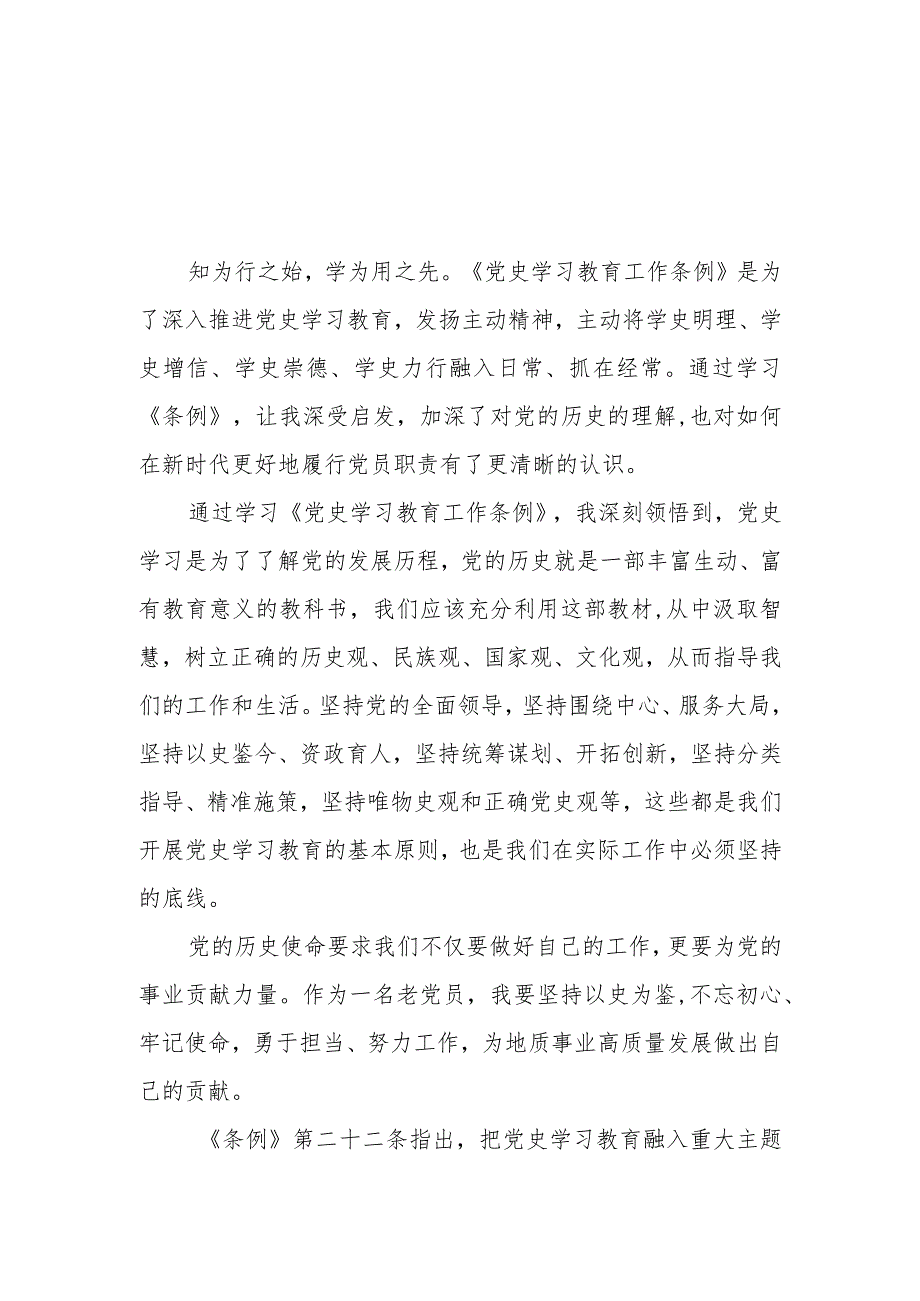 知为行之始，学为用之先。《党史学习教育工作条例》是为
了深入推进党史学习教育，发扬主动精神，主动将学史明理、学
史增信、学史崇德、学史力行融入日常、抓在经常。通过学习
《条例》，让我深受启发，加深了对党的历史的理解,也对如何
在新时代更好地履行党员职责有了更清晰的认识。
通过学习《党史学习教育工作条例》，我深刻领悟到，党史
学习是为了了解党的发展历程，党的历史就是一部丰富生动、富
有教育意义的教科书，我们应该充分利用这部教材,从中汲取智
慧，树立正确的历史观、民族观、国家观、文化观，从而指导我
们的工作和生活。坚持党的全面领导，坚持围绕中心、服务大局，
坚持以史鉴今、资政育人，坚持统筹谋划、开拓创新，坚持分类
指导、精准施策，坚持唯物史观和正确党史观等，这些都是我们
开展党史学习教育的基本原则，也是我们在实际工作中必须坚持
的底线。
党的历史使命要求我们不仅要做好自己的工作，更要为党的
事业贡献力量。作为一名老党员，我要坚持以史为鉴,不忘初心、
牢记使命，勇于担当、努力工作，为地质事业高质量发展做出自
己的贡献。
《条例》第二十二条指出，把党史学习教育融入重大主题